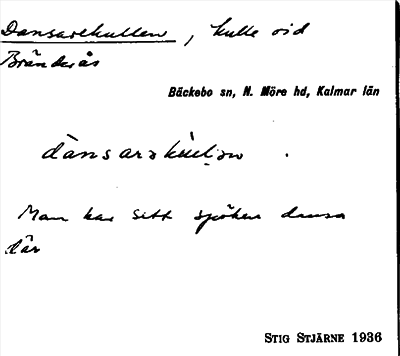 Dansarekullen, kulle vid
Bränderås
Bäckebo sn, N. Möre hd, Kalmar län
Man har sett spöken dansa
där
STIG STJÄRNE 1936